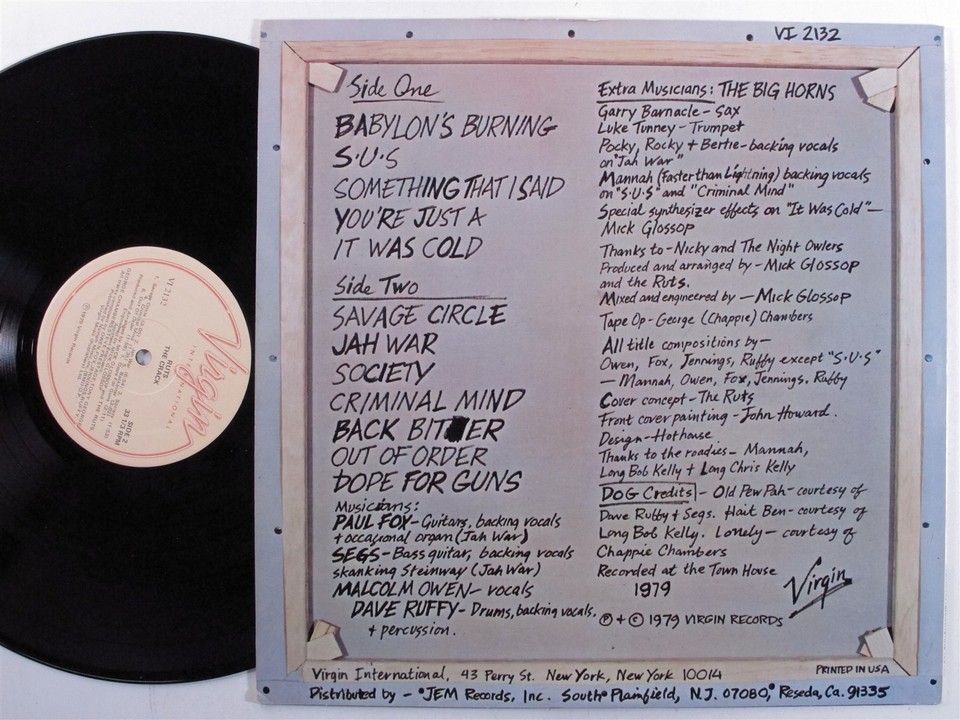 VI 2132
Side One
BABYLON'S BURNING
S·U·S
SOMETHING THAT I SAID
YOU'RE JUST A
IT WAS COLD
Side Two
SAVAGE CIRCLE
JAH WAR
SOCIETY
CRIMINAL MIND
BACK BITER
OUT OF ORDER
DOPE FOR GUNS
Musicians:
PAUL FOX-Guitars, backing vocals
+ occasional organ (Jah War)
SEGS-Bass guitar, backing vocals
skanking Steinway (Jah War)
MALCOLM OWEN- vocals
DAVE RUFFY- Drums, backing vocals.
+ percussion.
Extra Musicians: THE BIG HORNS
Garry Barnacle- Sax
Luke Tunney-Trumpet
Pocky, Rocky + Bertie-backing vocals
on "Jah War"
Mannah (Faster than Lightning) backing vocals
on "S·U·S" and "Criminal Mind"
Special synthesizer effects on "It Was Cold"—
Mick Glossop
Thanks to-Nicky and The Night Owlers
Produced and arranged by - Mick Glossop
and the Ruts.
Mixed and engineered by —Mick Glossop
Tape Op- George (Chappie) Chambers
All title compositions by—
Owen, Fox, Jennings, Ruffy except "S·U·S"
— Mannah, Owen, Fox, Jennings. Ruffy
Cover concept-The Ruts
Front cover painting-John Howard.
Design-Hothouse
Thanks to the roadies- Mannah,
Long Bob Kelly + Long Chris Kelly
DOG Credits - Old Pew Pah- courtesy of
Dave Ruffy + Segs. Hait Ben- courtesy of
Long Bob Kelly. Lonely— courtesy of
Chappie Chambers
Recorded at the Town House
1979
Virgin
Ⓟ + © 1979 VIRGIN RECORDS
Virgin International, 43 Perry St. New York, New York 10014
PRINTED IN USA
Distributed by - JEM Records, Inc. South Plainfield, N.J. 07080, Reseda, Ca. 91335
Virgin
INTERNATIONAL
VI 2132
RUTS
THE CRACK
SIDE 2
33 1/3 RPM